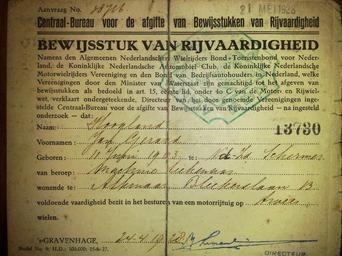 Aanvraag No.
21 MEI 1928
Centraal-Bureau voor de afgifte van Bewijsstukken van Rijvaardigheid
BEWIJSSTUK VAN RIJVAARDIGHEID
Namens den Algemeenen Nederlandschen Wielrijders Bond - Toeristenbond voor Neder-
land, de Koninklijke Nederlandsche Automobiel Club, de Koninklijke Nederlandsche
Motorwielrijders Vereeniging en den Bond van Bedrijfautohouders in Nederland, welke
Vereenigingen door den Minister van Waterstaat zijn gemachtigd tot het afgeven van
bewijsstukken als bedoeld in art. 15, eerste lid, onder 4o C van de Motor- en Rijwiel-
wet, verklaart ondergeteekende, Directeur van het door deze genoemde Vereenigingen inge-
stelde Centraal-Bureau voor de afgifte van Bewijsstukken van Rijvaardigheid — na ingesteld
onderzoek — dat:
Naam: Hoogland
13730
Voornamen: Jan Gerard
Geboren: 11 1903, te Schermer
van beroep:
wonende: Alkmaar
voldoende vaardigheid bezit in het besturen van een motorrijtuig op
wielen.
'sGRAVENHAGE, 24-4-1928
DIRECTEUR